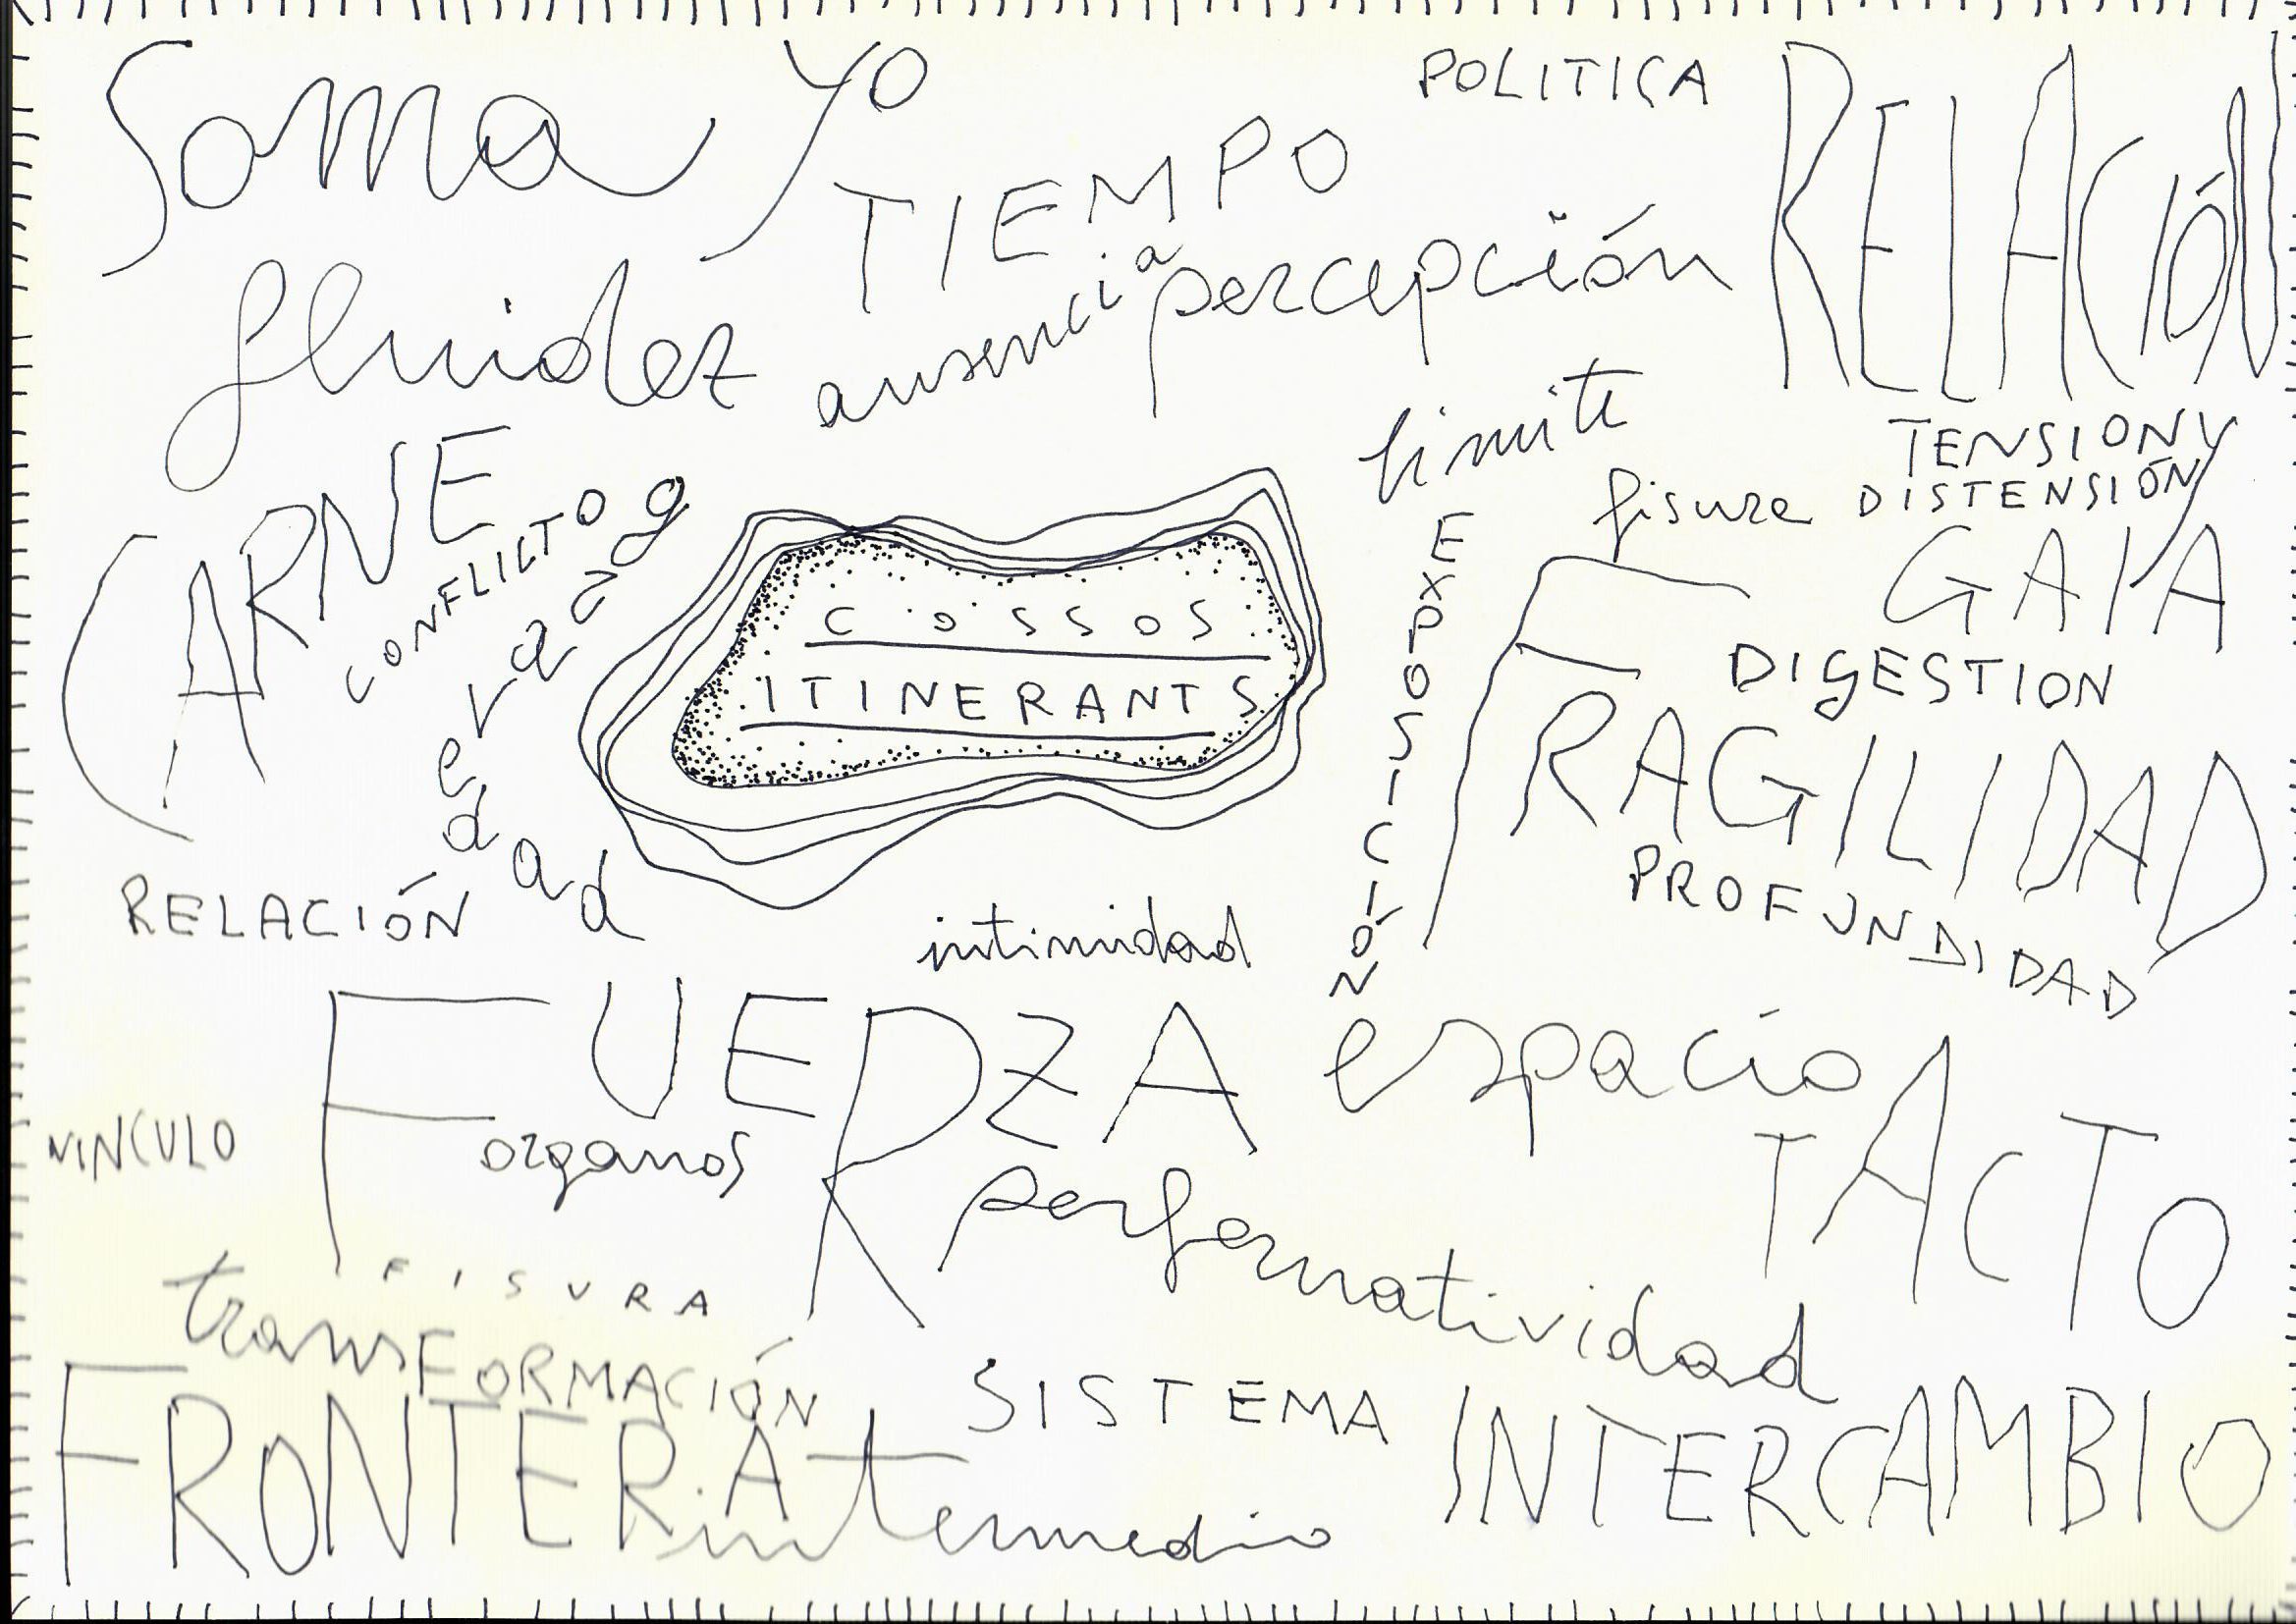 Soma
Yo
POLITICA
RELACIÓN
TIEMPO
ausencia
percepción
fluidez
límite
TENSION Y
DISTENSIÓN
fisura
CARNE
CONFLICTO
gravedad
COSSOS
ITINERANTS
EXPOSICIÓN
GAIA
DIGESTION
FRAGILIDAD
PROFUNDIDAD
RELACIÓN
intimidad
FUERZA
espacio
TACTO
VINCULO
organos
performatividad
FISURA
transFORMACIÓN
SISTEMA
INTERCAMBIO
FRONTERA
intermedio